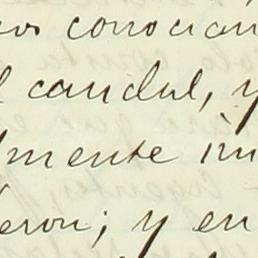 conocian
caudal, y
mente in
eron; y en